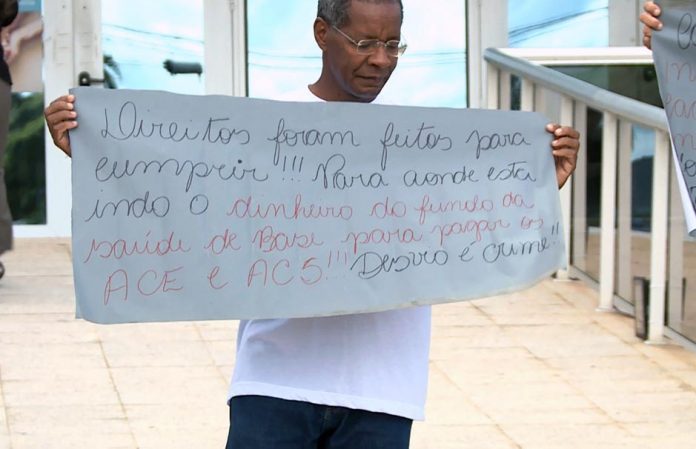 Direitos foram feitos para
cumprir!!! Para aonde esta
indo o dinheiro do fundo da
saúde de Base para pagar os
ACE e ACS!!! Desvio é crime!!